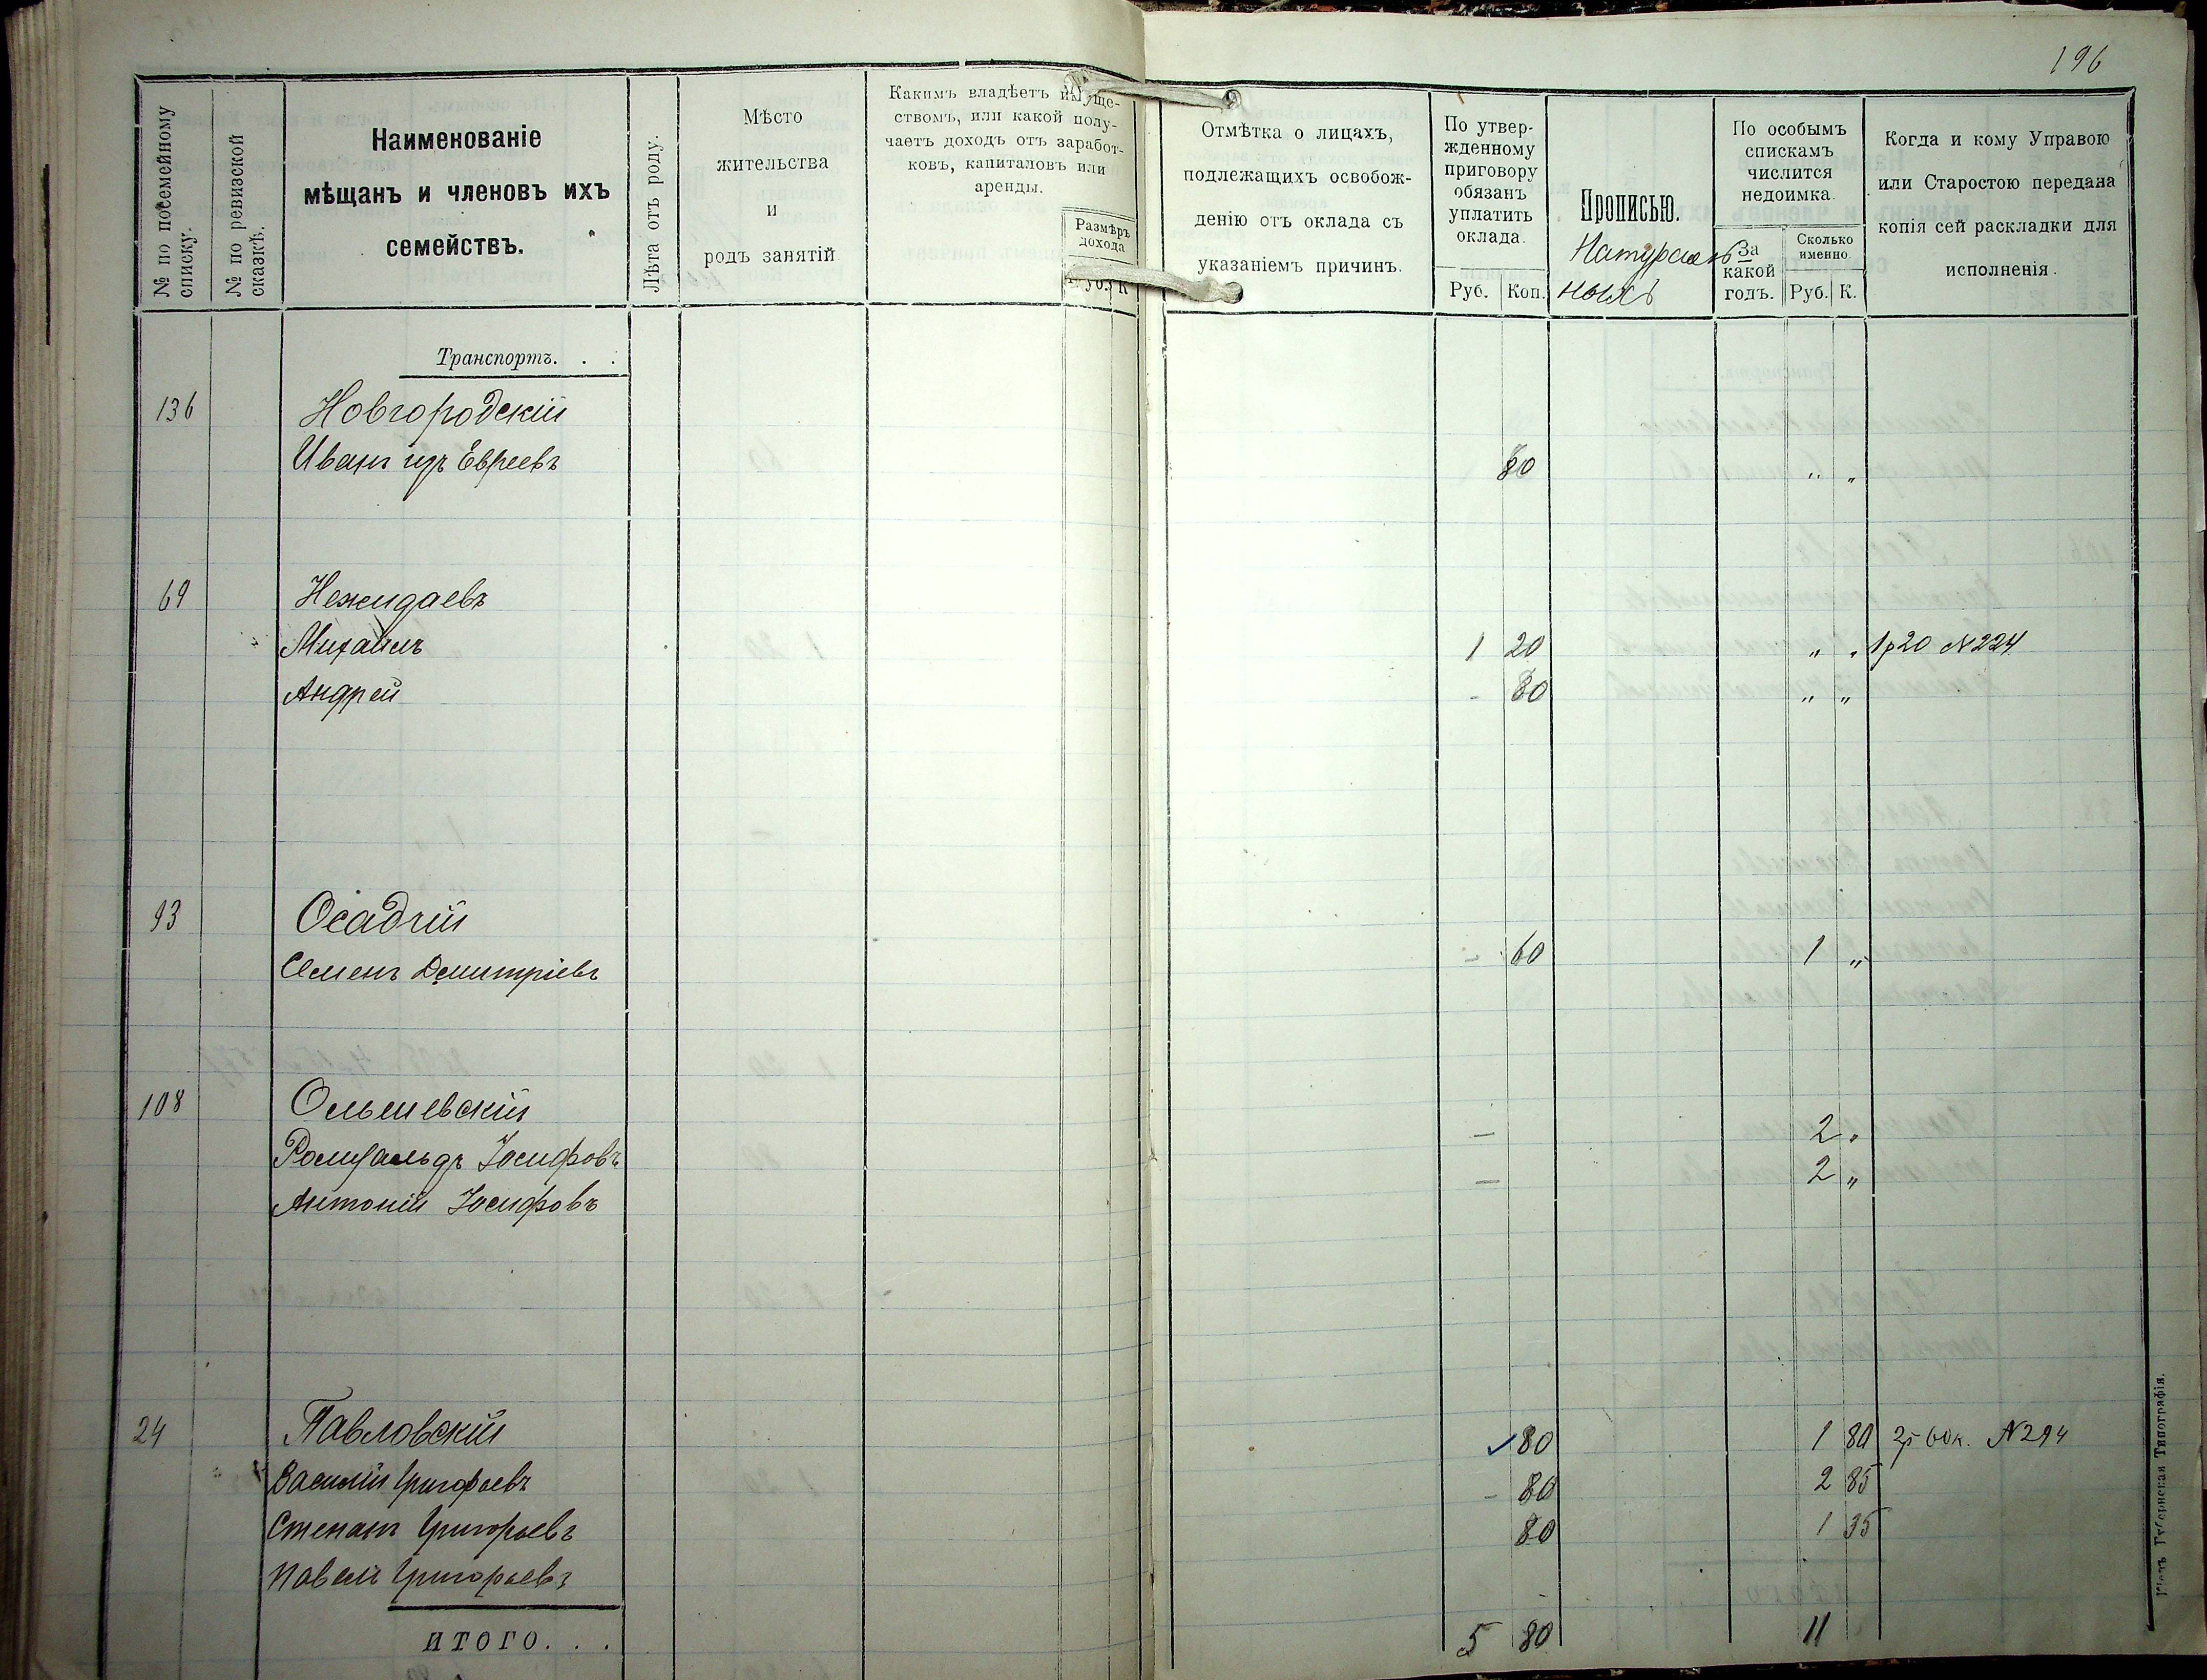 196
№ по посемейному списку.
№ по ревизской сказкѣ.
Наименованіе
мѣщанъ и членовъ ихъ
семействъ.
Лѣта отъ роду.
Мѣсто
жительства
и
родъ занятій
Какимъ владѣетъ имуще-
ствомъ, или какой полу-
чаетъ доходъ отъ заработ-
ковъ, капиталовъ или
аренды.
Размѣръ
дохода
Руб. К
Отмѣтка о лицахъ,
подлежащихъ освобож-
денію отъ оклада съ
указаніемъ причинъ.
По утвер-
жденному
приговору
обязанъ
уплатить
оклада.
Руб. Коп.
Прописью.
Натураль
ныхъ
По особымъ
спискамъ
числится
недоимка.
За
какой
годъ.
Сколько
именно.
Руб. К.
Когда и кому Управою
или Старостою передана
копія сей раскладки для
исполненія.
Транспортъ. . .
136 Новгородскій
Иванъ изъ Евреевъ 80 " "
69 Нежидаевъ
Михаилъ 1 20 " " 1р20 №224
Андрей - 80 " "
93 Осадчій
Семенъ Дмитріевъ - 60 1 "
108 Ольшевскій
Ромуальдъ Іосифовъ — 2 "
Антоній Іосифовъ — 2 "
24 Павловскій
Василій Григорьевъ 80 1 80 2р 60к. №294
Степанъ Григорьевъ - 80 2 85
Павелъ Григорьевъ 80 1 35
ИТОГО. . . 5 80 11
Кіевъ Губернская Типографія.